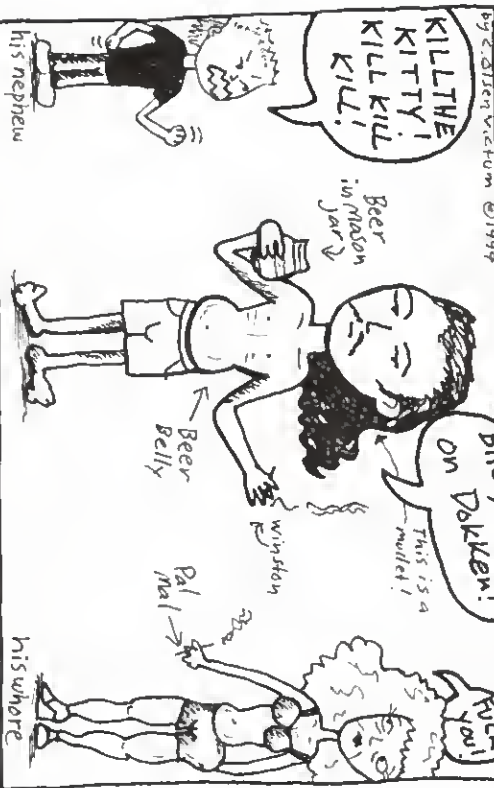 KILL THE
KITTY!
KILL KILL
KILL!
his nephew
Beer
in mason
Jar
on Dokken!
This is a
mullet!
Beer
Belly
Winston
Pal
Mal
you!
his whore